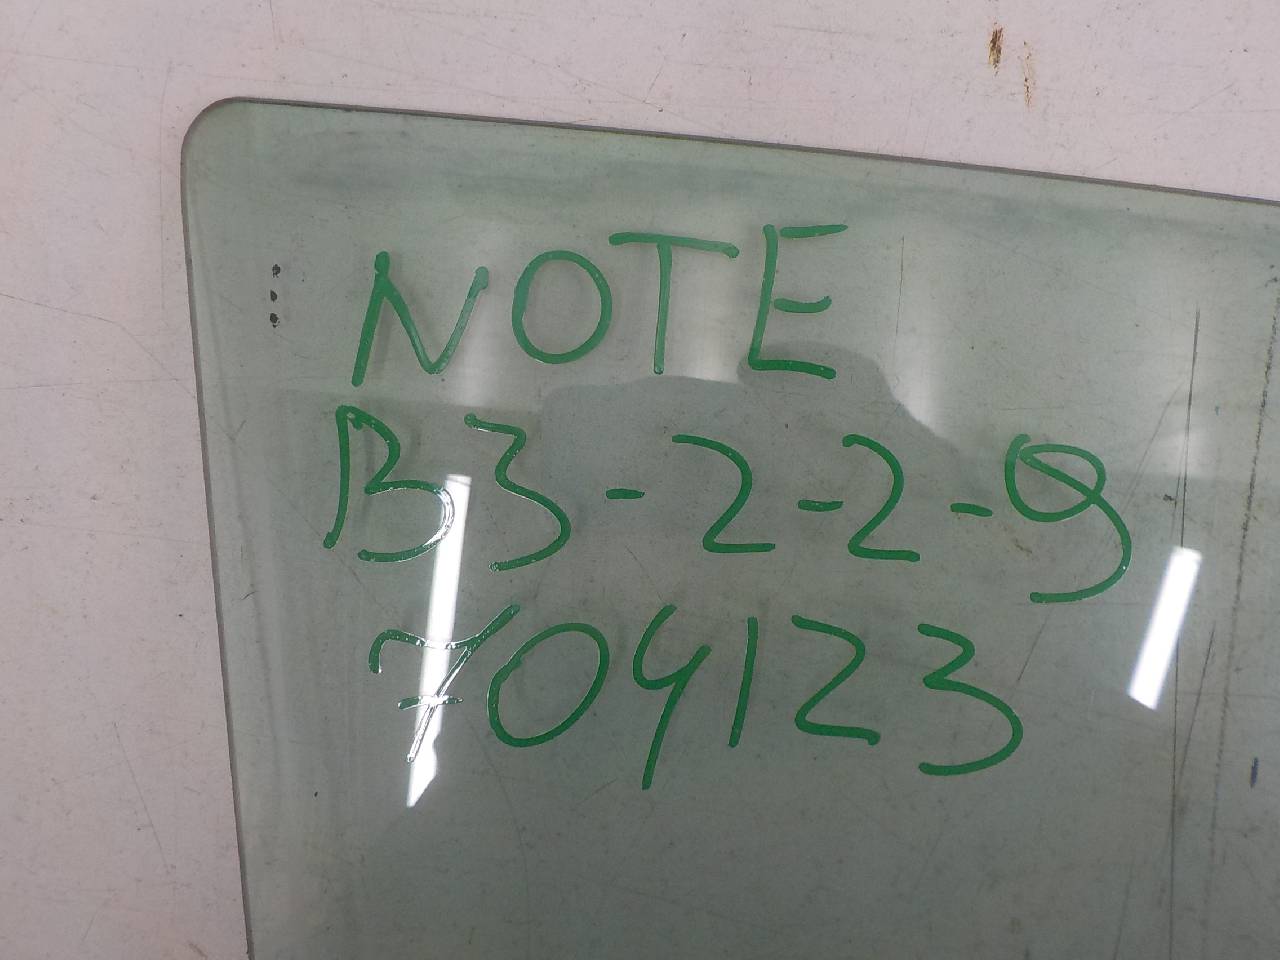 NOTE
B3-2-2-9
704123